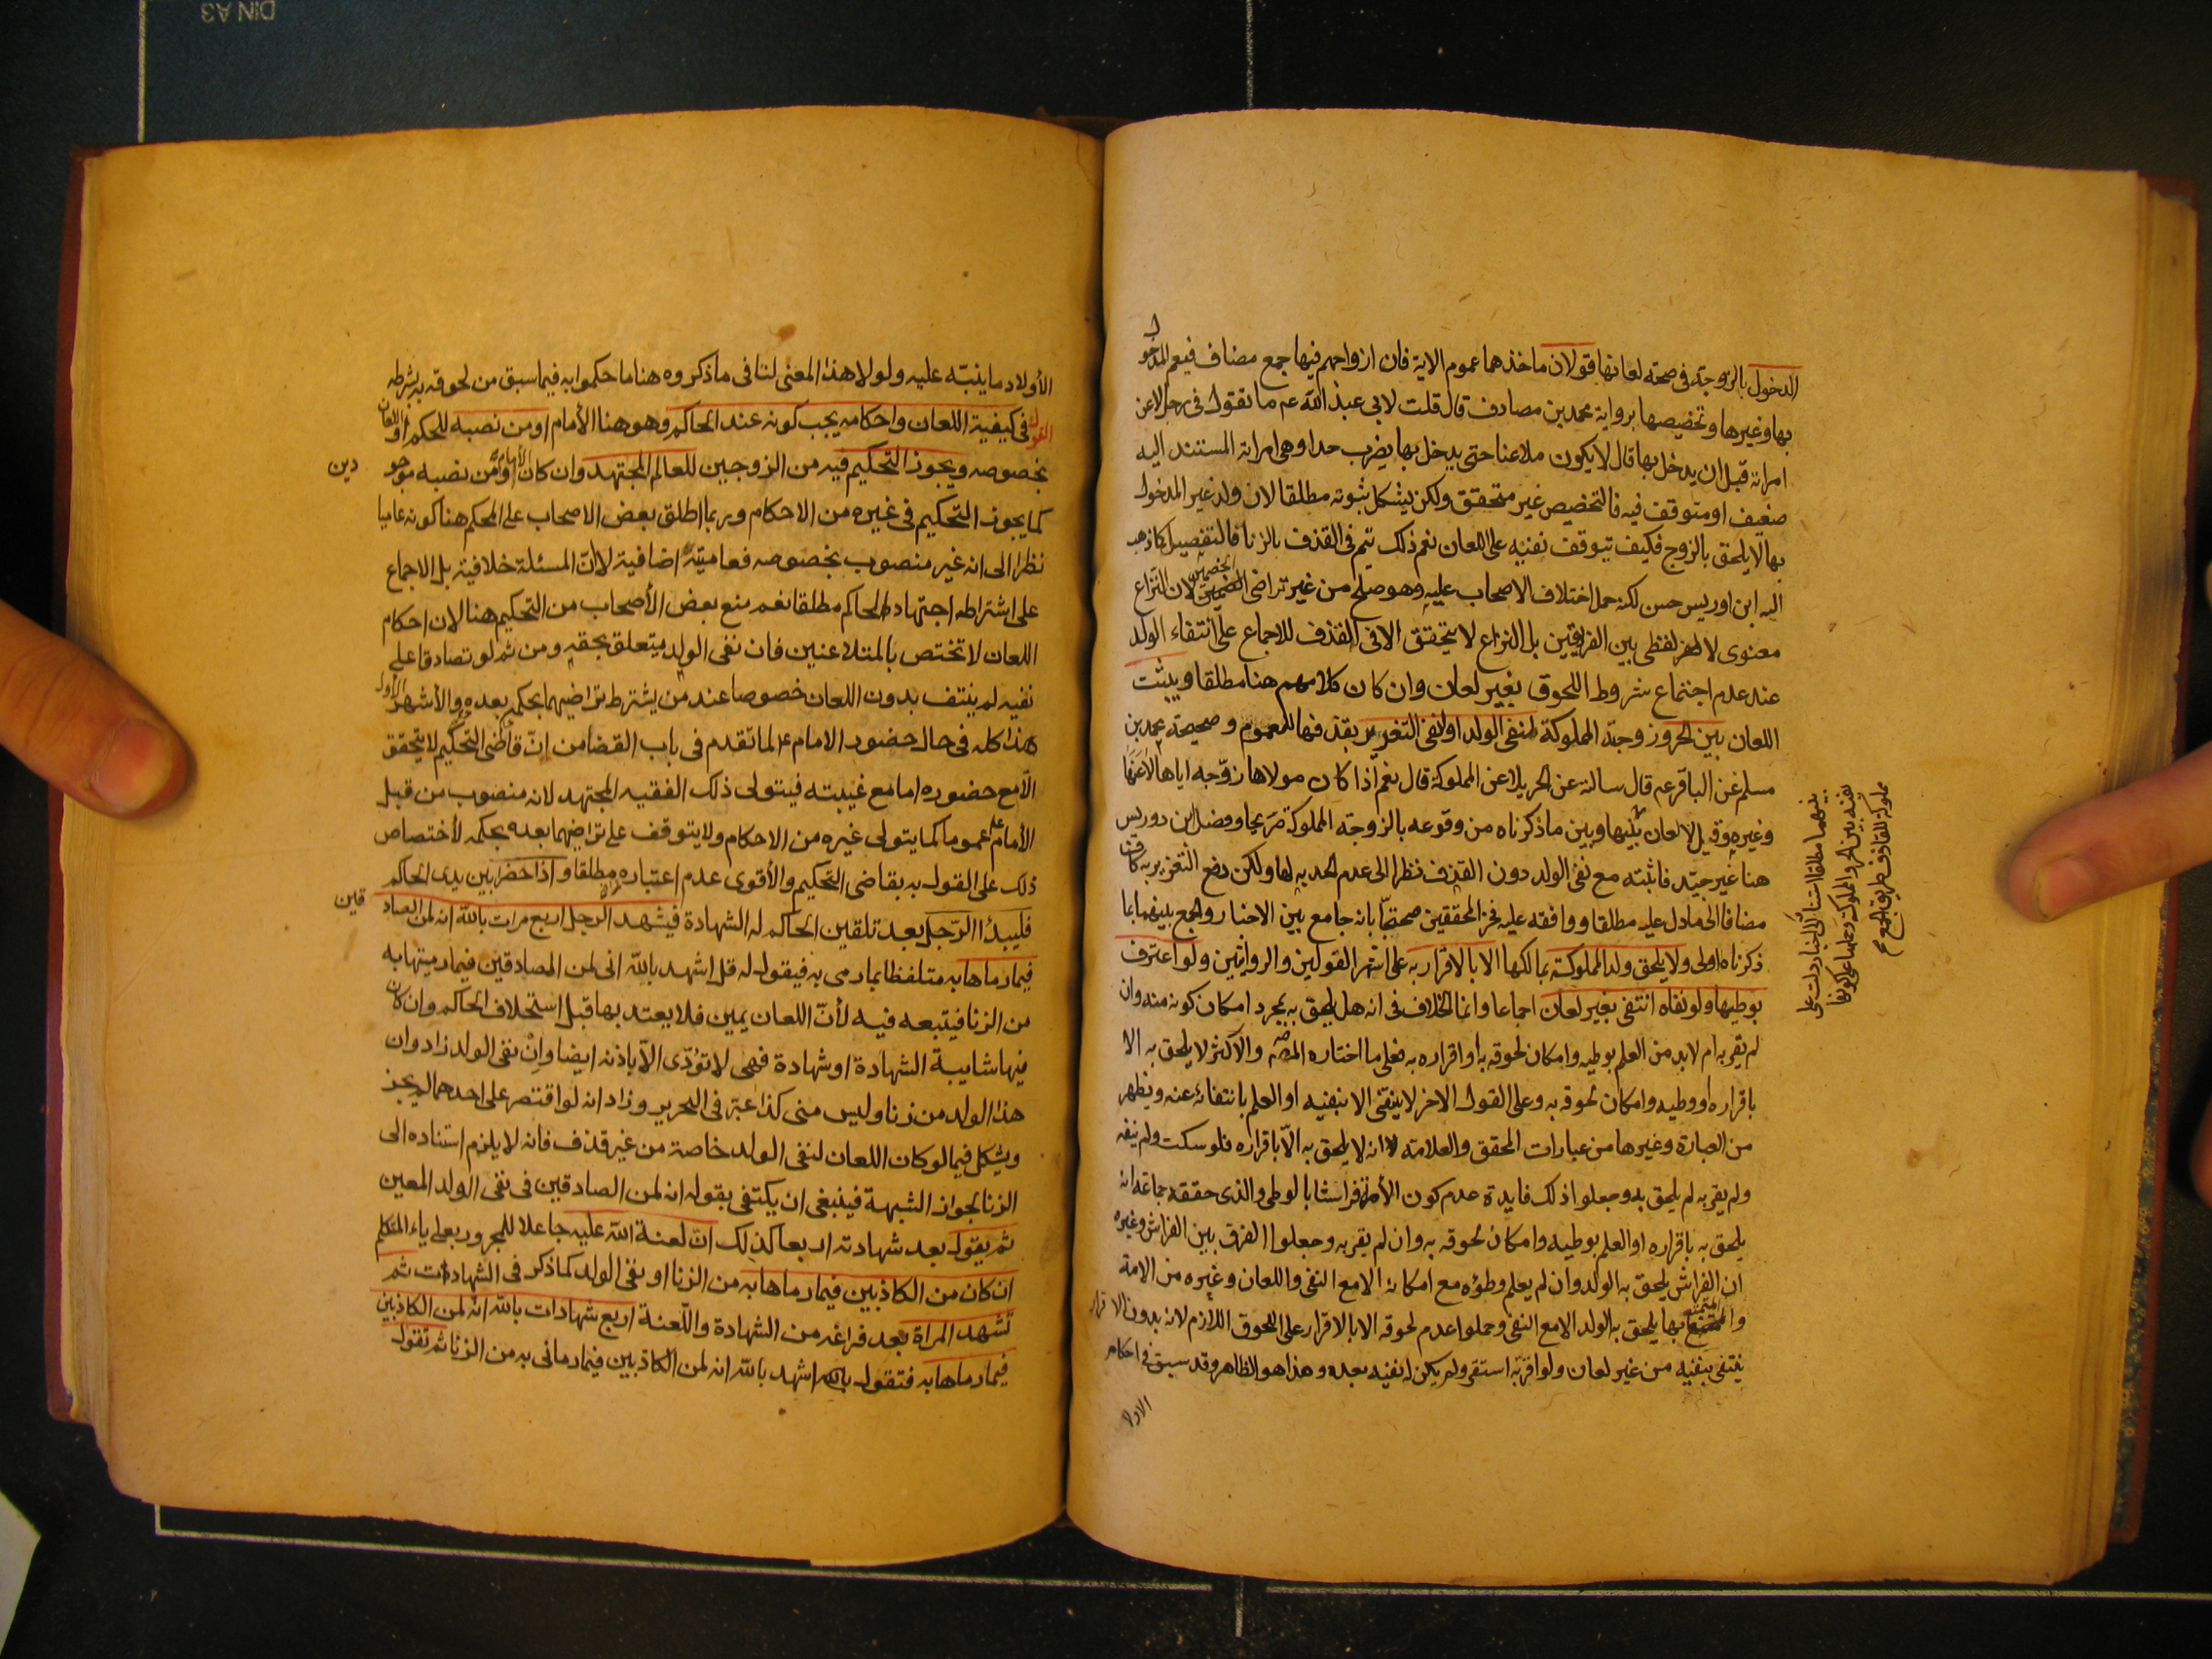 الدخول بالزوجة في صحة لعانها قولان ماخذهما عموم الاية فان ازواجهم فيها جمع مضاف فيعم المدخو ل
بها وغيرها وتخصيصها برواية محمد بن مصادف قال قلت لابي عبد الله عم ما تقول في رجل لاعن
امراته قبل ان يدخل بها قال لا يكون ملاعنا حتى يدخل بها يضرب حدا وهى امراته المستند اليه
ضعيف او متوقف فيه فالتخصيص غير متحقق ولكن يشكل ثبوته مطلقا لان ولد غير المدخول
بها لا يلحق بالزوج فكيف يتوقف نفيه على اللعان نعم ذلك يتم في القذف بالزنا فالتفصيل كما ذهب
اليه ابن ادريس حسن لكنه حمل اختلاف الاصحاب عليه وهو صلح من غير تراضى الخصمين لان النزاع
معنوى لا لفظى بين الفريقين بل النزاع لا يتحقق الا في القذف للاجماع على انتفاء الولد
عند عدم اجتماع شروط اللحوق بغير لعان وان كان كلامهم هنا مطلقا ويثبت
اللعان بين الحر وزوجته المملوكة لنفى الولد او لنفى التعزير بقذفها للعموم وصحيحة محمد بن
مسلم عن الباقر عم قال سالته عن الحر يلاعن المملوكة قال نعم اذا كان مولاها زوجه اياها لاعنها
وغيره وقيل لا لعان بينهما وبين ما ذكرناه من وقوعه بالزوجة المملوكة صريحا وفصل ابن دوريس
هنا غير جيد فاثبته مع نفى الولد دون القذف نظرا الى عدم الحد به لها ولكن دفع التعزير به كاف
مضافا الى ما دل عليه مطلقا ووافقه عليه فخر المحققين محتجا بانه جامع بين الاخبار والجمع بينهما بما
ذكرناه اولى ولا يلحق ولد المملوكة بمالكها الا بالاقرار به على اشهر القولين والروايتين ولو اعترف
بوطيها ولو نفاه انتفى بغير لعان اجماعا وانما الخلاف في انه هل يلحق به بمجرد امكان كونه منه وان
لم يقر به ام لا بد من العلم بوطيه وامكان لحوقه به او اقراره به فعلى ما اختاره المص والاكثر لا يلحق به الا
باقراره او وطيه وامكان لحوقه به وعلى القول الاخر لا ينتفى الا بنفيه او العلم بانتفائه عنه ويظهر
من العبارة وغيرها من عبارات المحقق والعلامة انه لا يلحق به الا باقراره فلو سكت ولم ينفه
ولم يقر به لم يلحق به وجعلوا ذلك فايدة عدم كون الامة فراشا بالوطى والذى حققه جماعة انه
يلحق به باقراره او العلم بوطيه وامكان لحوقه به وان لم يقر به وجعلوا الفرق بين الفراش وغيره
ان الفراش يلحق به الولد وان لم يعلم وطؤه مع امكانه الا مع النفى واللعان وغيره من الامة
والمتمتع بها يلحق به الولد الا مع النفى وحملوا عدم لحوقه الا بالاقرار على اللحوق اللازم لانه بدون الاقرار
ينتفى بنفيه من غير لعان ولو اقر به استقر ولم يكن له نفيه بعده وهذا هو الظاهر وقد سبق في احكام
الاولا
بينهما مطلقا استنادا الى اخبار دلت على
نفيه بين الحر والمملوكة وحملها على كونها
مملوكة للقاذف طريق الجمع صح
الأولاد ما ينبه عليه ولولا هذا المعنى لنافى ما ذكروه هنا ما حكموا به فيما سبق من لحوقه به بشرطه
القول في كيفية اللعان واحكامه يجب كونه عند الحاكم وهو هنا الأمام او من نصبه للحكم او اللعان
بخصوصه ويجوز التحكيم فيه من الزوجين للعالم المجتهد وان كان الامام او من نصبه موجو دين
كما يجوز التحكيم في غيره من الاحكام وربما اطلق بعض الاصحاب على المحكم هنا كونه عاميا
نظرا الى انه غير منصوب بخصوصه فعاميته اضافية لا ان المسئلة خلافية بل الاجماع
على اشتراط اجتهاد الحاكم مطلقا نعم منع بعض الأصحاب من التحكيم هنا لان احكام
اللعان لا تختص بالمتلاعنين فان نفى الولد يتعلق بحقه ومن ثم لو تصادقا على
نفيه لم ينتف بدون اللعان خصوصا عند من يشترط تراضيهما بحكمه بعده والأشهر الأول
هذا كله في حال حضور الامام عم لما تقدم في باب القضا من ان قاضى التحكيم لا يتحقق
الا مع حضوره اما مع غيبته فيتولى ذلك الفقيه المجتهد لانه منصوب من قبل
الأمام عم عموما كما يتولى غيره من الاحكام ولا يتوقف على تراضيهما بعده بحكمه لأختصاص
ذلك على القول به بقاضى التحكيم والأقوى عدم اعتباره مطلقا واذا حضرا بين يدى الحاكم
فليبدأ الرجل بعد تلقين الحاكم له الشهادة فيشهد الرجل اربع مرات بالله انه لمن الصاد قين
فيما رماها به متلفظا بما رمى به فيقول له قل اشهد بالله انى لمن الصادقين فيما رميتها به
من الزنا فيتبعه فيه لأن اللعان يمين فلا يعتد بها قبل استحلاف الحاكم وان كان
فيها شايبة الشهادة او شهادة فهى لا تؤدى الا باذنه ايضا وان نفى الولد زاد وان
هذا الولد من زنا وليس منى كذا عبر في التحرير وزاد انه لو اقتصر على احدهما لم يجز
ويشكل فيما لو كان اللعان لنفى الولد خاصة من غير قذف فانه لا يلزم استناده الى
الزنا لجواز الشبهة فينبغى ان يكتفى بقوله انه لمن الصادقين في نفى الولد المعين
ثم يقول بعد شهادته اربعا كذلك ان لعنة الله عليه جاعلا للمجرور بعلى ياء المتكلم
ان كان من الكاذبين فيما رماها به من الزنا او نفى الولد كما ذكر في الشهادات ثم
تشهد المراة بعد فراغه من الشهادة واللعنة اربع شهادات بالله انه لمن الكاذبين
فيما رماها به فتقول اشهد بالله انه لمن الكاذبين فيما رمانى به من الزنا ثم تقول